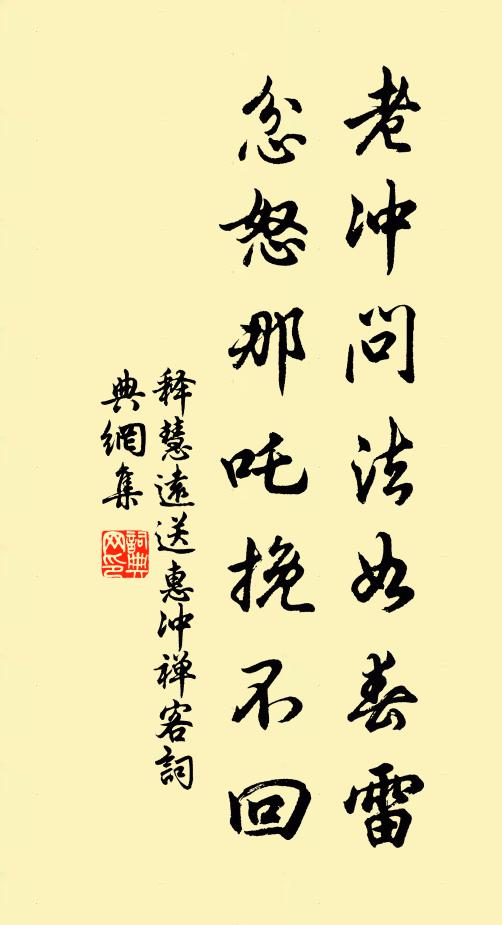 老冲问法如春雷
忿怒那吒挽不回
释慧遠送惠冲禅客詞
典網集
詞典网印